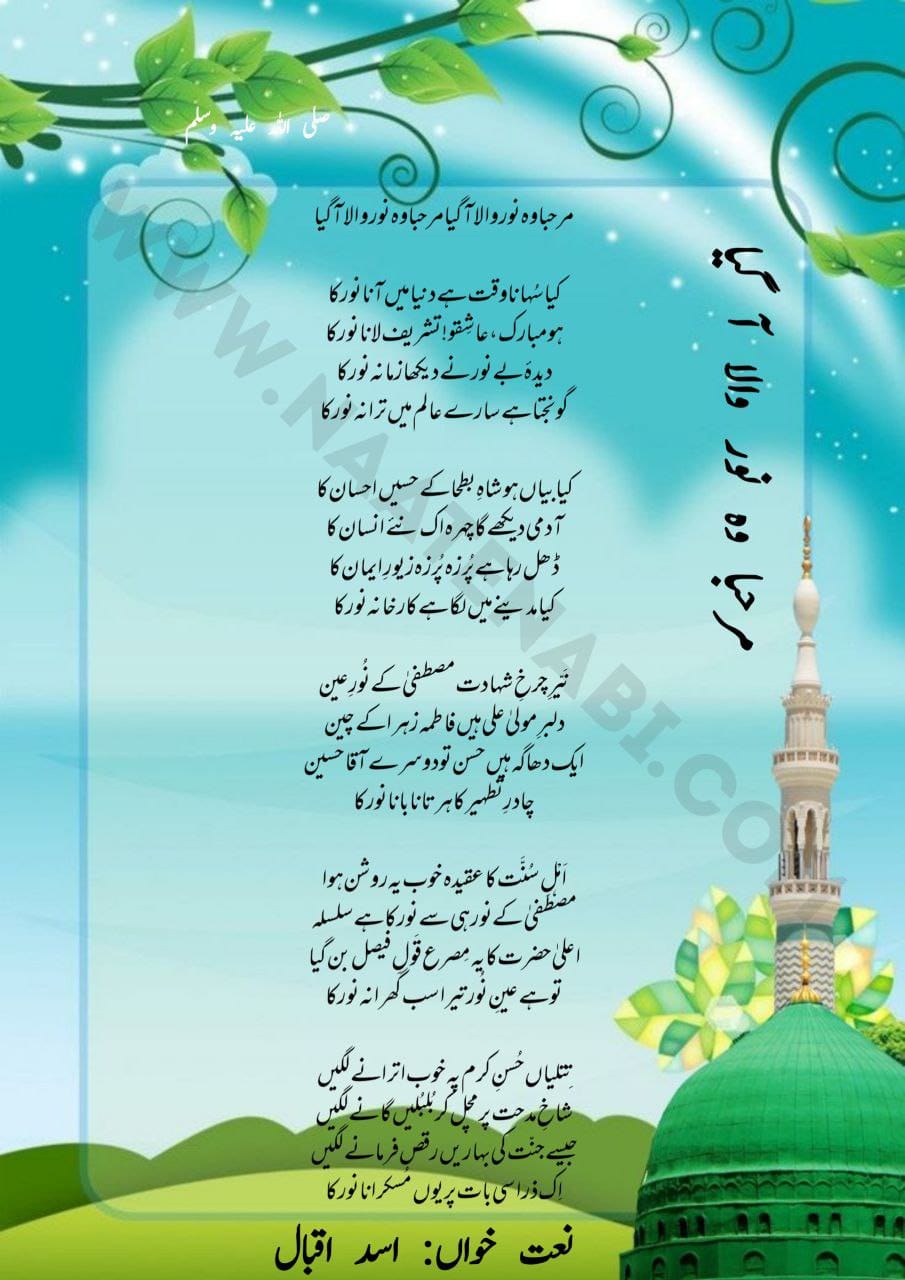 صلی اللہ علیہ وسلم
مرحبا وہ نور والا آ گیا
مرحبا وہ نور والا آ گیا مرحبا وہ نور والا آ گیا
کیا سُہانا وقت ہے دنیا میں آنا نور کا
ہو مبارک، عاشِقو! تشریف لانا نور کا
دیدۂ بے نور نے دیکھا زمانہ نور کا
گونجتا ہے سارے عالم میں ترانہ نور کا
کیا بیاں ہو شاہِ بطحا کے حسیں احسان کا
آدمی دیکھے گا چہرہ اک نئے انسان کا
ڈھل رہا ہے پُرزہ پُرزہ زیورِ ایمان کا
کیا مدینے میں لگا ہے کارخانہ نور کا
نَیرِ چرخِ شہادت مصطفیٰ کے نُورِ عین
دلبرِ مولیٰ علی ہیں فاطمہ زہرا کے چین
ایک دھاگہ ہیں حسن تو دوسرے آقا حسین
چادرِ تطہیر کا ہر تانا بانا نور کا
اَہْلِ سُنَّت کا عقیدہ خوب یہ روشن ہوا
مصطفیٰ کے نور ہی سے نور کا ہے سلسلہ
اعلیٰ حضرت کا یہ مِصرع قَولِ فیصل بن گیا
تو ہے عینِ نُور تیرا سب گھرانہ نور کا
تِتلیاں حُسنِ کرم پہ خوب اترانے لگیں
شاخِ مدحت پر مچل کر بُلبُلیں گانے لگیں
جیسے جنّت کی بہاریں رقص فرمانے لگیں
اِک ذرا سی بات پر یوں مُسکرانا نور کا
نعت خواں: اسد اقبال
WWW.NAATENABI.COM